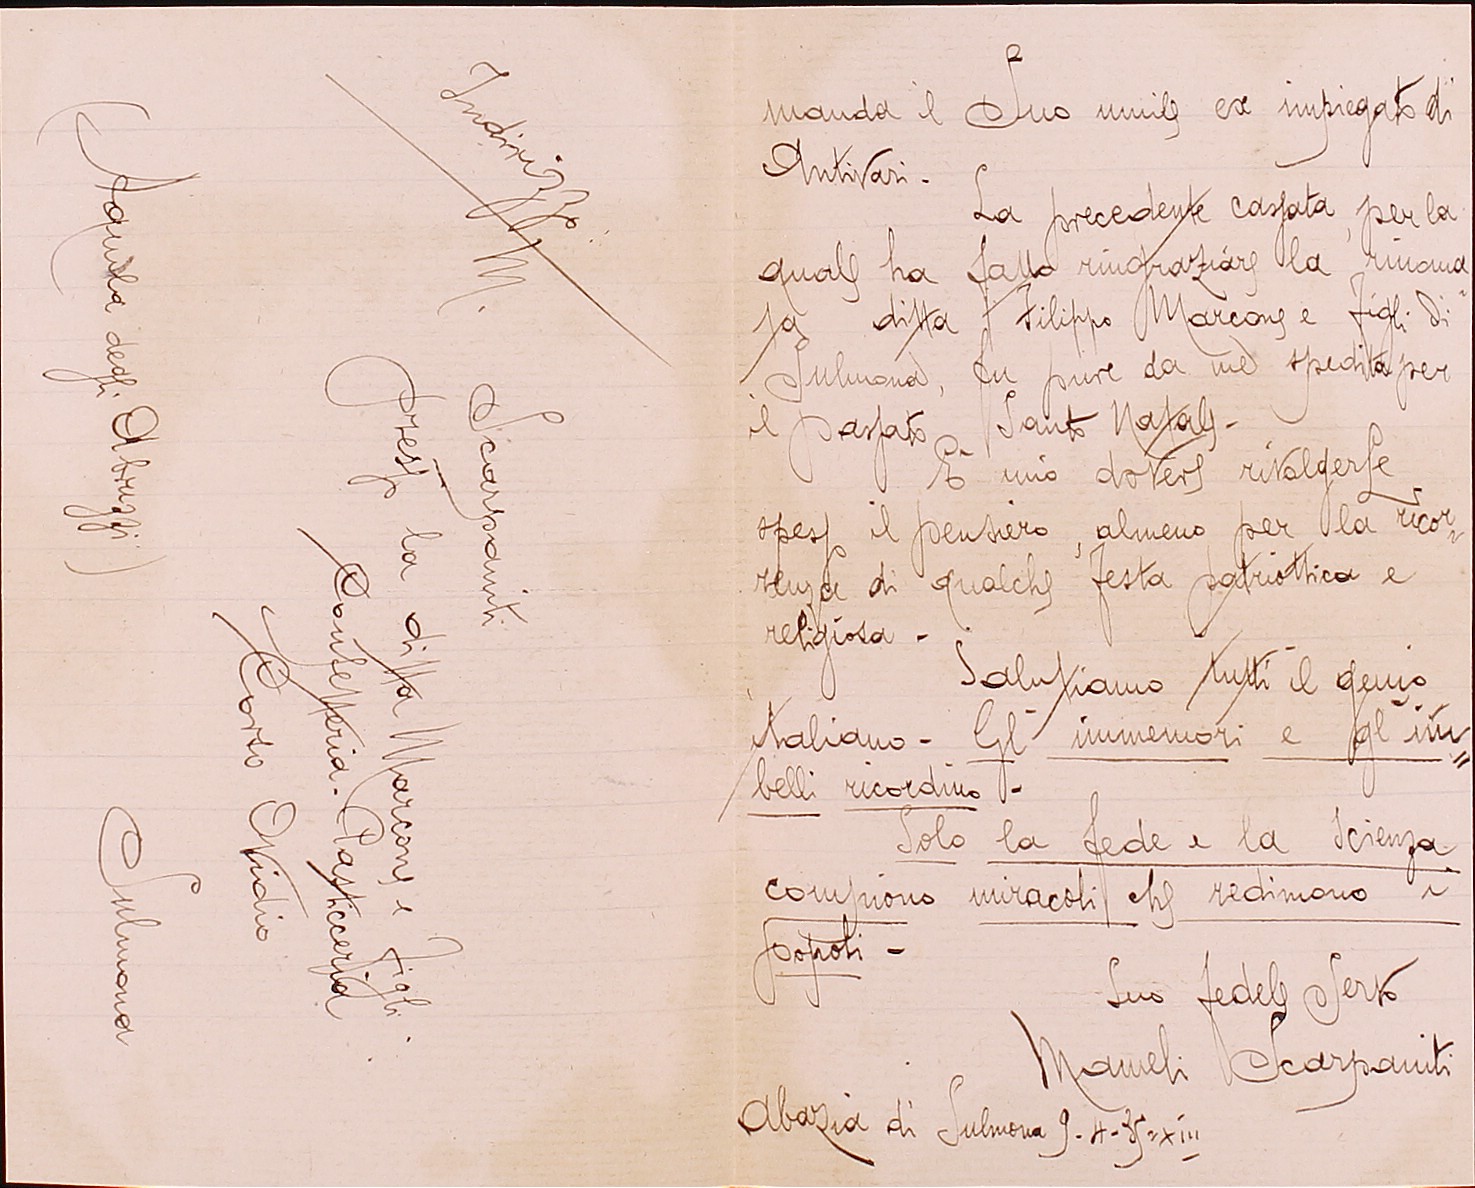 manda il Suo umile ex impiegato di
Antivari -
La precedente cassata, per la
quale ha fatto ringraziare la rinoma
ta ditta Filippo Marcone e Figli di
Sulmona, fu pure da me spedita per
il passato Santo Natale -
È mio dovere rivolgerLe
spesso il pensiero, almeno per la ricor
renza di qualche festa patriottica e
religiosa -
Salutiamo tutti il genio
italiano - Gl' immemori e gl' im
belli ricordino -
Solo la fede e la scienza
compiono miracoli che redimono i
popoli -
Suo fedele Servo
Mameli Scarpaniti
Abazia di Sulmona 9-4-35=XIII
Indirizzo: M. Scarpaniti
Presso la ditta Marcone e Figli.
Confetteria - Pasticceria
Corso Ovidio
Sulmona
(Aquila degli Abruzzi)